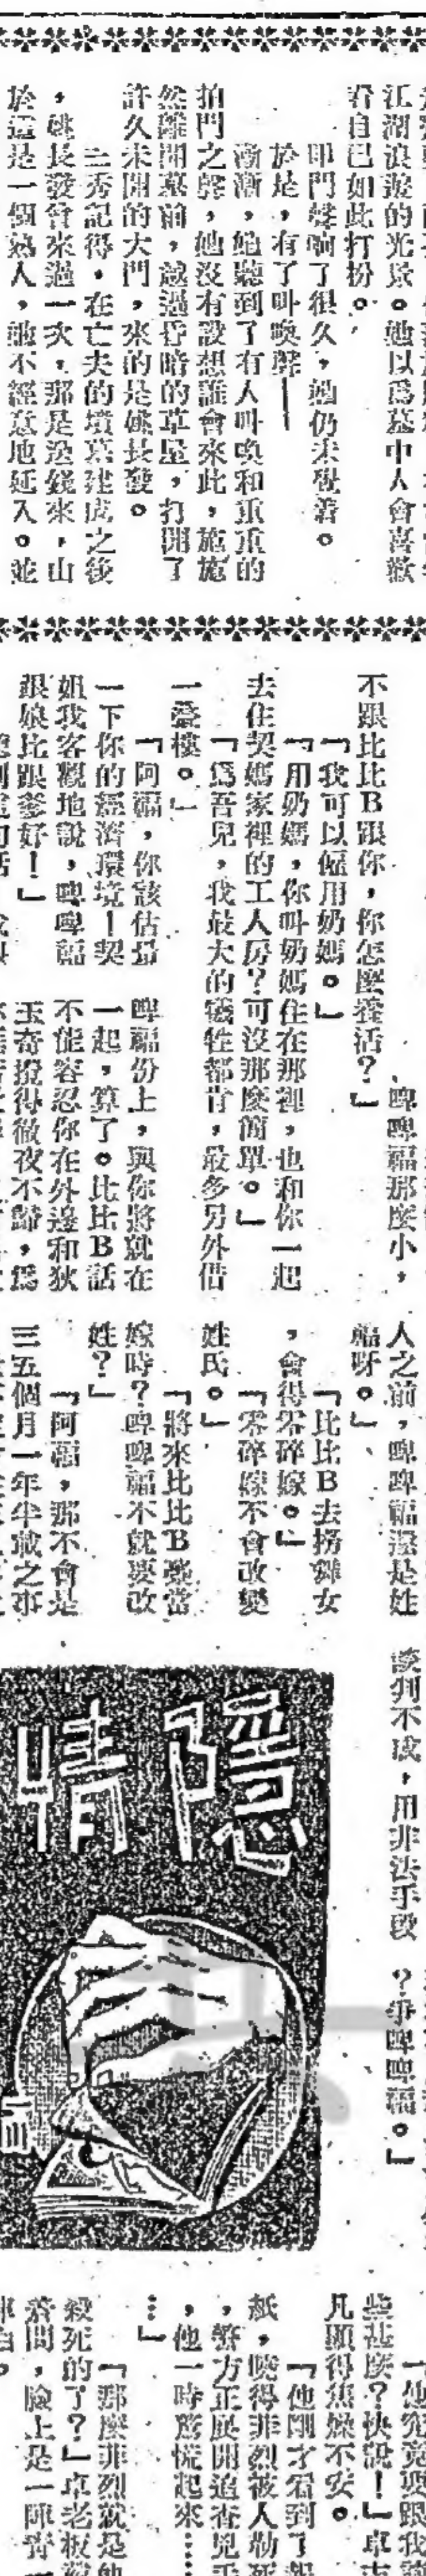 江湖浪遊的光景。她以爲墓中人會喜歡
看自己如此打扮。
叩門聲响了很久,她仍未覺着。
於是,有了叫喚聲——
漸漸,她聽到了有人叫喚和重重的
拍門之聲,她沒有設想誰會來此,施施
然離開墓前,越過昏暗的草屋,打開了
許久未開的大門,來的是姚長發。
三秀記得,在亡夫的墳墓建成之後
,姚長發曾來過一次,那是送錢來,由
於這是一個熟人,她不經意地延入。並
啤啤福那麼小,
不跟比比B跟你,你怎麼養活?」
「我可以僱用奶媽。」
「用奶媽,你叫奶媽住在那裡,也和你一起
去住契媽家裡的工人房?可沒那麼簡單。」
「爲吾兒,我最大的犧牲都肯,最多另外借
一疊樓。」
「阿福,你該估量
一下你的經濟環境!契
姐我客觀地說,啤啤福
跟娘比跟爹好!」
啤福份上,與你將就在
一起,算了。比比B話
不能容忍你在外邊和狄
玉奇攪得徹夜不歸,爲
人之前,啤啤福還是姓
福呀。」
「比比B去撈舞女
,會得零碎嫁。」
「零碎嫁不會改變
姓氏。」
「將來比比B強當
嫁時?啤啤福不就要改
姓?」
「阿福,那不會是
三五個月一年半載之事
談判不成,用非法手段
?爭啤啤福。」
隱情
「他究竟要跟我談
些甚麼?快說!」卓志
凡顯得焦燥不安。
「他剛才看到了報
紙,曉得菲烈被人勒死
,警方正展開追查兇手
,他一時驚慌起來……
…」
「那麼菲烈就是他
殺死的了?」卓老板
着問,臉上是一陣靑一